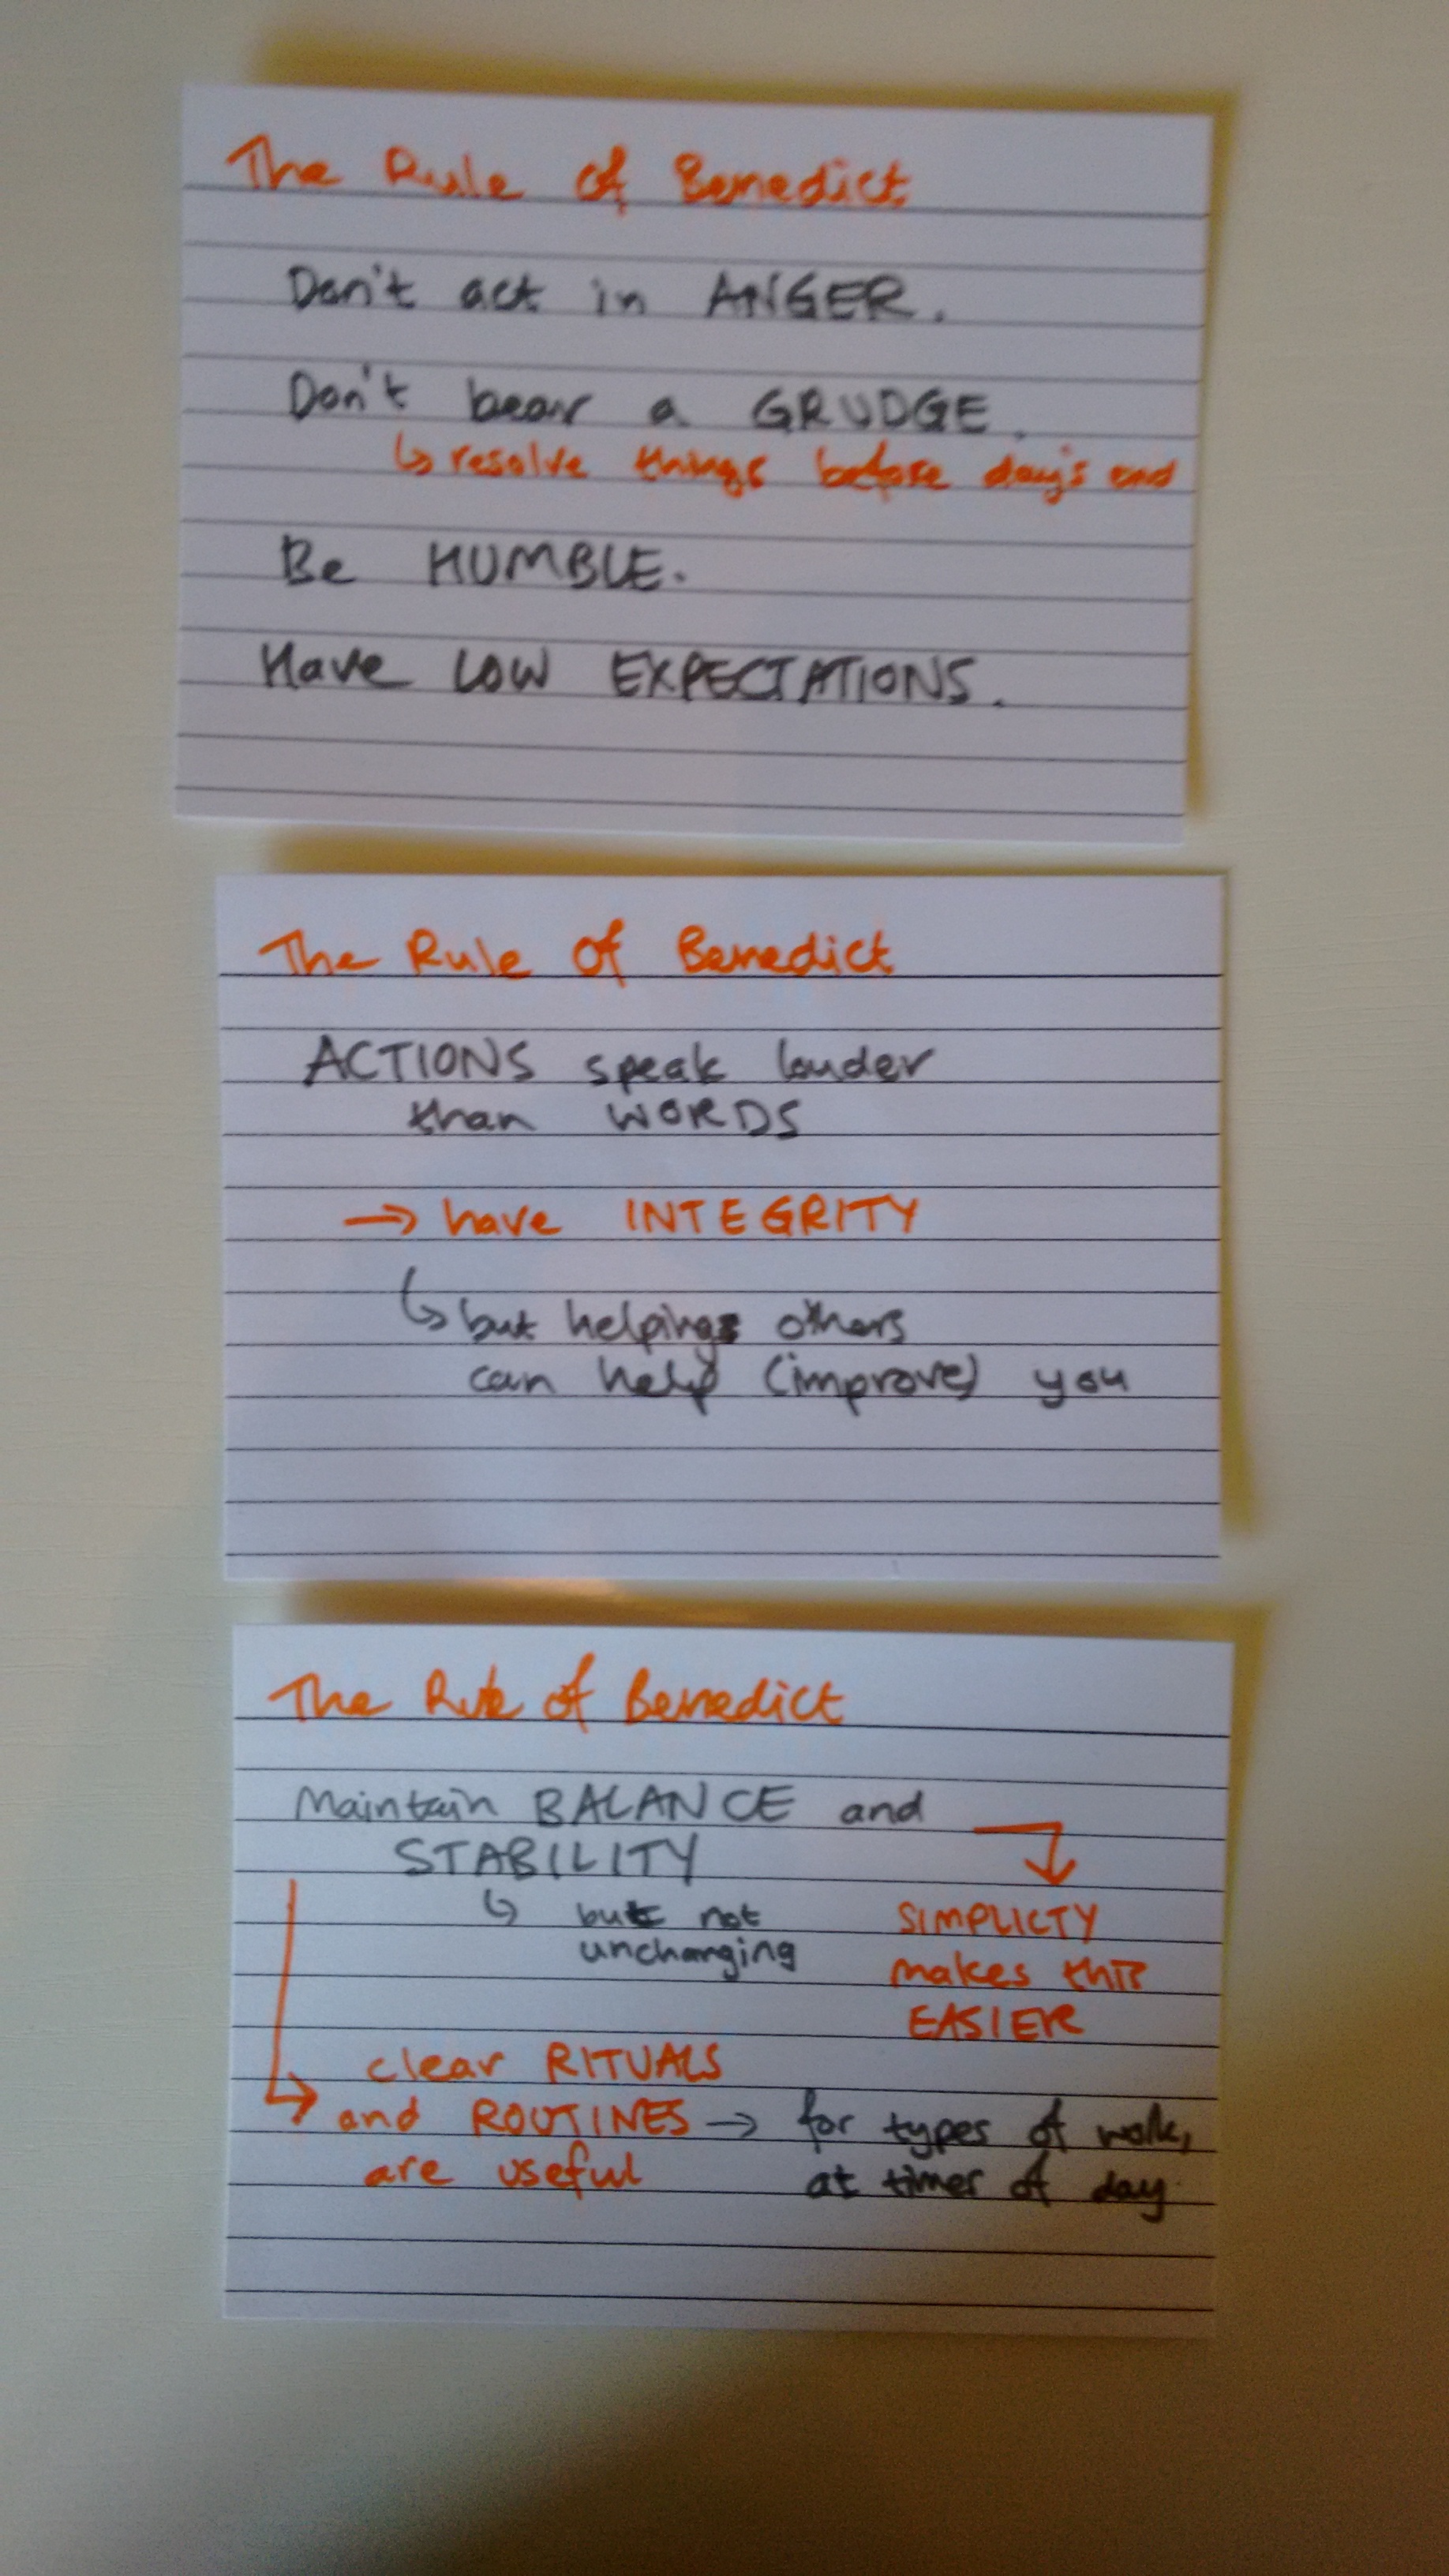 The Rule of Benedict
Don't act in ANGER.
Don't bear a GRUDGE.
↳ resolve things before day's end
Be HUMBLE.
Have LOW EXPECTATIONS.
The Rule of Benedict
ACTIONS speak louder
than WORDS
→ have INTEGRITY
↳ but helping others
can help (improve) you
The Rule of Benedict
Maintain BALANCE and
STABILITY
↳ but not
unchanging
SIMPLICTY
makes this
EASIER
clear RITUALS
and ROUTINES → for types of work,
are useful
at times of day